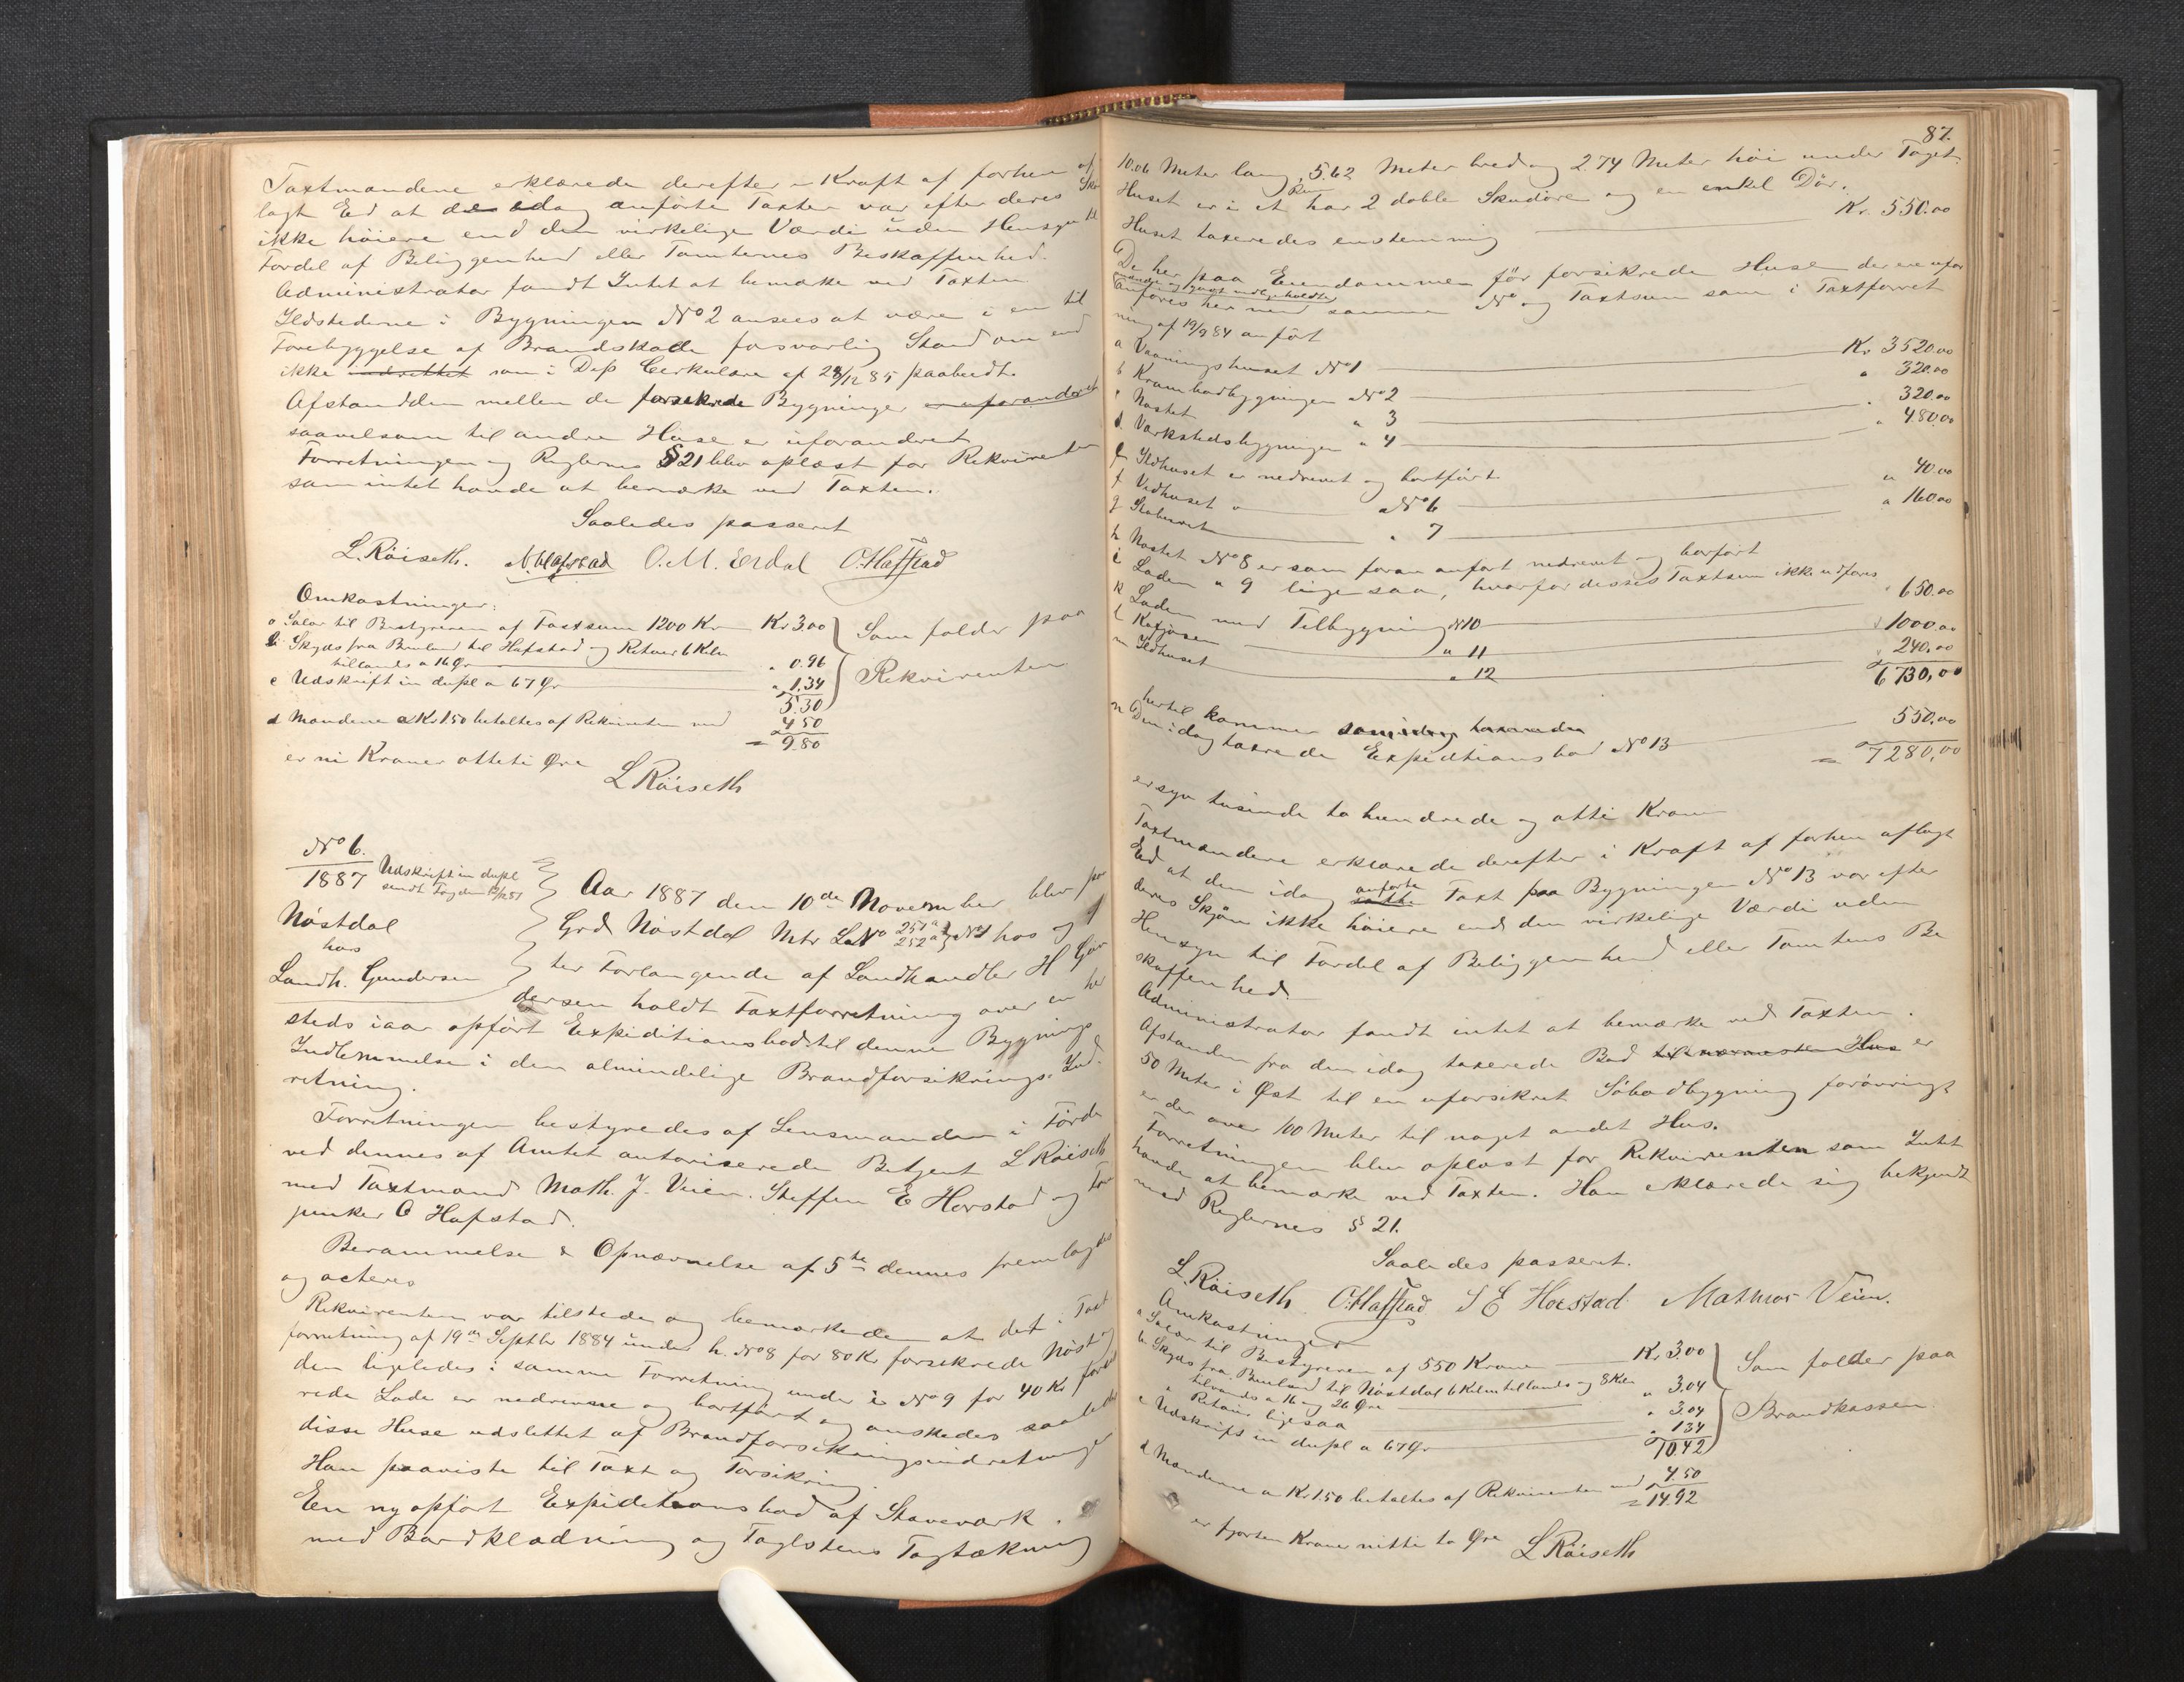 Taxtmændene erklærede derefter i Kraft af forhen af
lagt Ed at de idag anførte Taxter var efter deres Skj
ikke høiere end den virkelige Værdi uden Hensyn til
Fordel af Beliggenhed eller Tomternes Beskaffenhed.
Administrator fandt Intet at bemærke ved Taxten
Ildstederne i Bygningen No 2 ansees at være i en til
Forebyggelse af Brandskade forsvarlig Stand om end
ikke indrettet som i Deps Cerkulære af 28/12 85 paabudt.
Afstandden mellem de forsekrede Bygninger er uforandret
saavelsom til andre Huse er uforandret
Forretningen og Reglernes § 21 blev oplæst for Rekvirenten
som intet havde at bemærke ved Taxten.
Saaledes passeret
L. Röiseth. N. Hafstad O. M. Erdal O. Hafstad
Omkostninger:
a Salær til Bestyreren af Taxtsum 1200 Kr Kr 3.00
b Skyds fra Bruland til Hafstad og Retuer 6 Kilm
tillands a 16 Ør " 0.96
c Udskrift in dupl a 67 Ør " 1.34
5.30
Som falder paa
Rekvirenten
d Mændene a Kr 1.50 betaltes af Rekvirenten med 4.50
= 9.80
er ni Kroner otteti Øre
L Röiseth
No 6.
1887
Udskrift in dupl
sendt
Nøstdal
hos
Landh. Gundersen
Aar 1887 den 10de November blev paa
Grd Nøstdal Mtr LNo 251 a 252 a No 1 hos og ef
ter Forlangende af Landhandler H Gun
dersen holdt Taxtforretning over en her
steds iaar opført Expeditionsbod til denne Bygnings
Indlemmelse i den almindelige Brandforsikrings-Ind-
retning.
Forretningen bestyredes af Lensmanden i Førde
ved dennes af Amtet autoriserede Betjent L Röiseth
med Taxtmænd Math. J. Veien. Steffen E Horstad og For
junker O Hafstad.
Berammelse & Opnævnelse af 5te dennes fremlagdes
og acteres
Rekvirenten var tilstede og bemærkede at det i Taxt
forretning af 19de Septbr 1884 under h. No 8 for 80 Kr forsekrede Nøst og
den ligeledes i samme Forretning under i No 9 for 40 Kr forsek
rede Lade er nedrevne og bortført og ønskedes saaledes
disse Huse udslettet af Brandforsekringsindretningen
Han paaviste til Taxt og Forsikring.
En ny opført Expeditionsbod af Stavværk
med Bordklædning og Taglstens Tagtækning
87.
10.06 Meter lang, 5.62 Meter bred og 2.74 Meter høi under Taget.
Huset er i et Rum har 2 doble Skudøre og en enkel Dør.
Huset taxeredes enstemmig Kr. 550.00
De her paa Eiendommen før forsikrede Huse der ere ufor
andre og godt vedligeholdte
anføres her med samme No og Taxtsum som i Taxtforret
ning af 19/9 84 anført
a Vaaningshuset No 1 Kr 3520.00
b Krambodbygningen No 2 " 320.00
c Nøstet " 3 " 320.00
d Værkstedsbygningen " 4 " 480.00
e Ildhuset er nedrevet og bortført.
f Vedhuset " No 6 " 40.00
g Stabburet " 7 " 160.00
h Nøstet No 8 er som foran anført nedrevet og borført
i Laden " 9 ligesaa, hvorfor desses Taxtsum ikke udføres
k Laden med Tilbygning No 10 " 650.00
l Kafjøsen " 11 " 1000.00
m Ildhuset " 12 " 240.00
6730,00
hertil kommer som idag taxeredes
n Den idag taxerede Expeditionsbod No 13 550.00
= 7280,00
er syv tusinde to hundrede og otti Kroner
Taxtmændene erklærede derefter i Kraft af forhen aflagt
Ed at den idag satte anførte Taxt paa Bygningen No 13 var efter
deres Skjøn ikke høiere end den virkelige Værdi uden
Hensyn til Fordel af Beliggenhed eller Tomtens Be
skaffenhed.
Administrator fandt intet at bemærke ved Taxten.
Afstanden fra den idag taxerede Bod til nærmeste Hus er
50 Meter i Øst til en uforsikret Søbodbygning forøvrigt
er der over 100 Meter til noget andet Hus.
Forretningen blev oplæst for Rekvirenten som Intet
havde at bemærke ved Taxten. Han erklærede sig bekjendt
med Reglernes § 21.
Saaledes passeret.
L. Röiseth O. Hafstad S E Horstad Mathias Veien.
Omkostninger
a Salær til Bestyreren af 550 Krone Kr. 3.00
b Skyds fra Bruland til Nøstdal 6 Kilm tillands og 8 Kilm
tilvands a 16 og 26 Øre " 3.04
" Retour ligesaa " 3.04
c Udskrift in dupl a 67 Ør " 1.34
10.42
Som falder paa
Brandkassen
d Mændene a Kr 1.50 betaltes af Rekvirenten med 4.50
= 14.92
er fjorten Kroner nitti to Øre L Röiseth